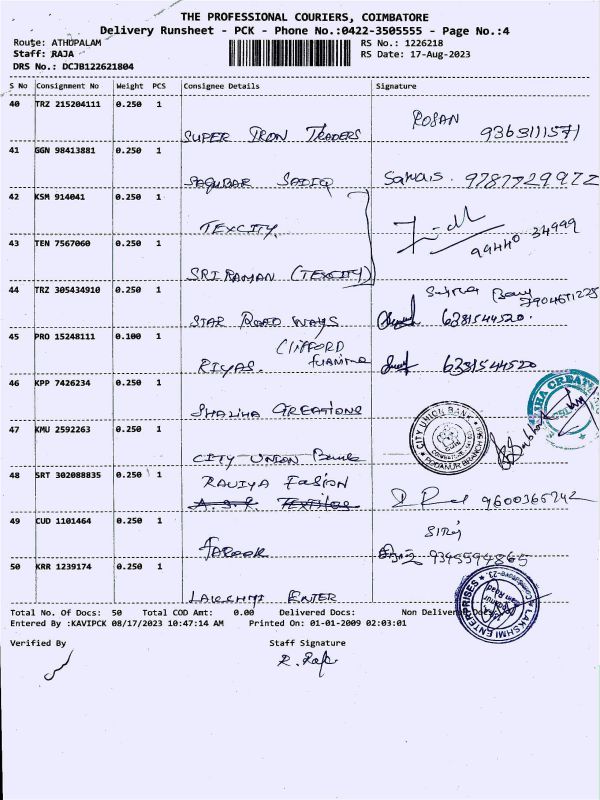 THE PROFESSIONAL COURIERS, COIMBATORE
Delivery Runsheet - PCK - Phone No.:0422-3505555 - Page No.:4
Route: ATHUPALAM
RS No.: 1226218
Staff: RAJA
RS Date: 17-Aug-2023
DRS No.: DCJB122621804
S No Consignment No Weight PCS Consignee Details Signature
40 TRZ 215204111 0.250 1
ROSAN
SUPER IRON TRADERS 9363111571
41 GGN 98413881 0.250 1
SAQUBAR SADIQ 9787729972
42 KSM 914041 0.250 1
TEXCITY.
94440 34999
43 TEN 7567060 0.250 1
SRI RAMAN (TEXCITY)
44 TRZ 305434910 0.250 1
STAR ROAD WAYS 6381544520.
45 PRO 15248111 0.100 1
CLIFFORD
RIYAS. 6381544520
46 KPP 7426234 0.250 1
SHALIHA CREATIONS
47 KMU 2592263 0.250 1
CITY UNION BANK
CITY UNION Bank
48 SRT 302088835 0.250 1
RAVIYA FASION
A.S.R. TEXTILES
9600365242
49 CUD 1101464 0.250 1
SIRAJ
FAROOK 9345594865
50 KRR 1239174 0.250 1
LAKSHMI ENTER
LAKSHMI ENTERPRISES
Total No. Of Docs: 50 Total COD Amt: 0.00 Delivered Docs: Non Delivered Docs:
Entered By :KAVIPCK 08/17/2023 10:47:14 AM Printed On: 01-01-2009 02:03:01
Verified By Staff Signature
R. Raja